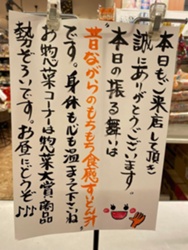 本日も、ご来店して頂き
誠にありがとうございます。
本日の振る舞いは
昔ながらのもちもち食感すいとん汁
です。身体も心も温まって下さいね
お惣菜コーナーは惣菜大賞商品
勢ぞろいです。お昼にどうぞ♪♪♪